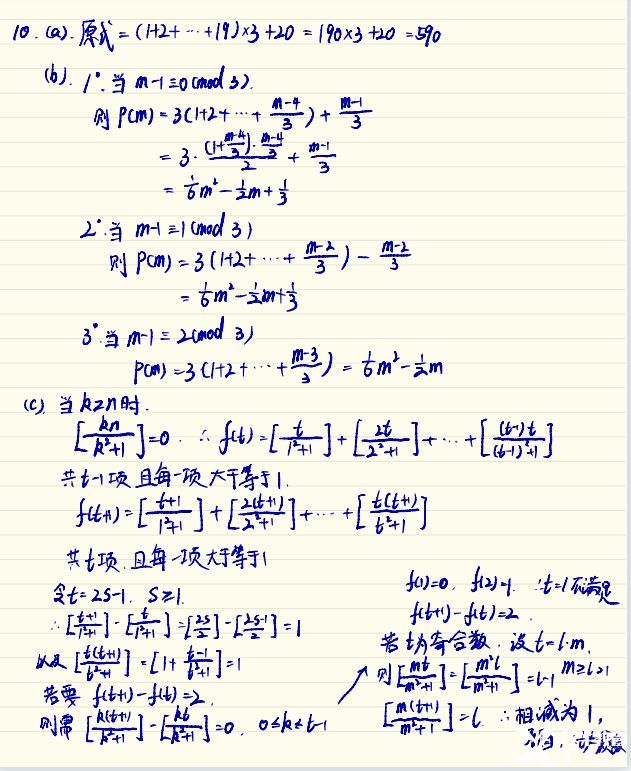 10. (a). 原式 = (1+2+ ⋯ +19)×3+20 = 190×3+20 = 590
(b). 1°. 当 m-1≡0(mod 3).
则 P(m) = 3(1+2+⋯+ (m-4)/3) + (m-1)/3
= 3· ((1+(m-4)/3)·(m-4)/3)/2 + (m-1)/3
= 1/6 m² - 1/2 m + 1/3
2°. 当 m-1≡1(mod 3)
则 P(m) = 3(1+2+⋯+ (m-2)/3) - (m-2)/3
= 1/6 m² - 1/2 m + 1/3
3° 当 m-1≡2(mod 3)
P(m) = 3(1+2+⋯+ (m-3)/3) = 1/6 m² - 1/2 m
(c) 当 k≥n 时.
[kn/(k²+1)]=0. ∴ f(t) = [t/(1²+1)] + [2t/(2²+1)] + ⋯ + [(t-1)t/((t-1)²+1)]
共t-1项 且每一项大于等于1.
f(t+1) = [(t+1)/(1²+1)] + [2(t+1)/(2²+1)] + ⋯ + [t(t+1)/(t²+1)]
共t项, 且每一项大于等于1
令t=2s-1, s≥1.
∴ [(t+1)/(1²+1)] - [t/(1²+1)] = [2s/2] - [(2s-1)/2] = 1
以及 [t(t+1)/(t²+1)] = [1+ (t-1)/(t²+1)] = 1
若要 f(t+1)-f(t)=2.
则需 [k(t+1)/(k²+1)] - [kt/(k²+1)] = 0, 0≤k≤t-1
f(1)=0, f(2)=1, ∴t=1不满足
f(t+1)-f(t)=2.
若t为奇合数, 设t=l·m.
则 [mt/(m²+1)] = [m²l/(m²+1)] = l-1 m≥l>1
[m(t+1)/(m²+1)] = l. ∴相减为1,